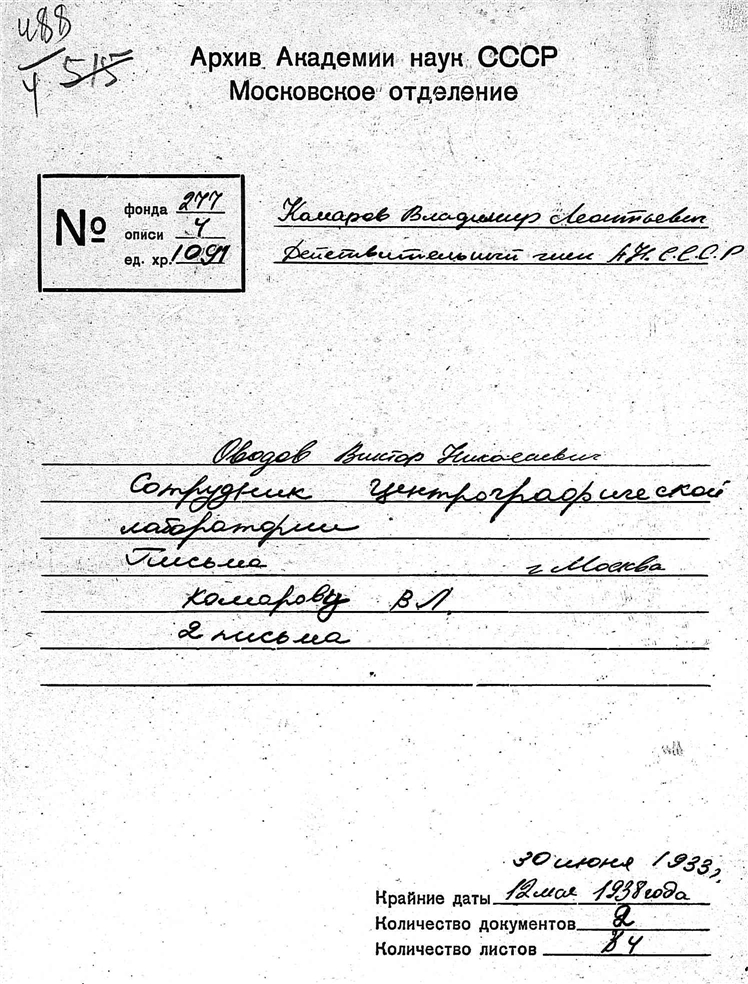 488
4 515
Архив Академии наук СССР
Московское отделение
№
фонда 277
описи 4
ед. хр. 1091
Комаров Владимир Леонтьевич
Действительный член А.Н.С.С.С.Р
Оводов Виктор Николаевич
Сотрудник Центрографической
лаборатории
Письма г Москва
Комарову В Л.
2 письма
30 июня 1933г.
Крайние даты 12 мая 1938 года
Количество документов 2
Количество листов 4